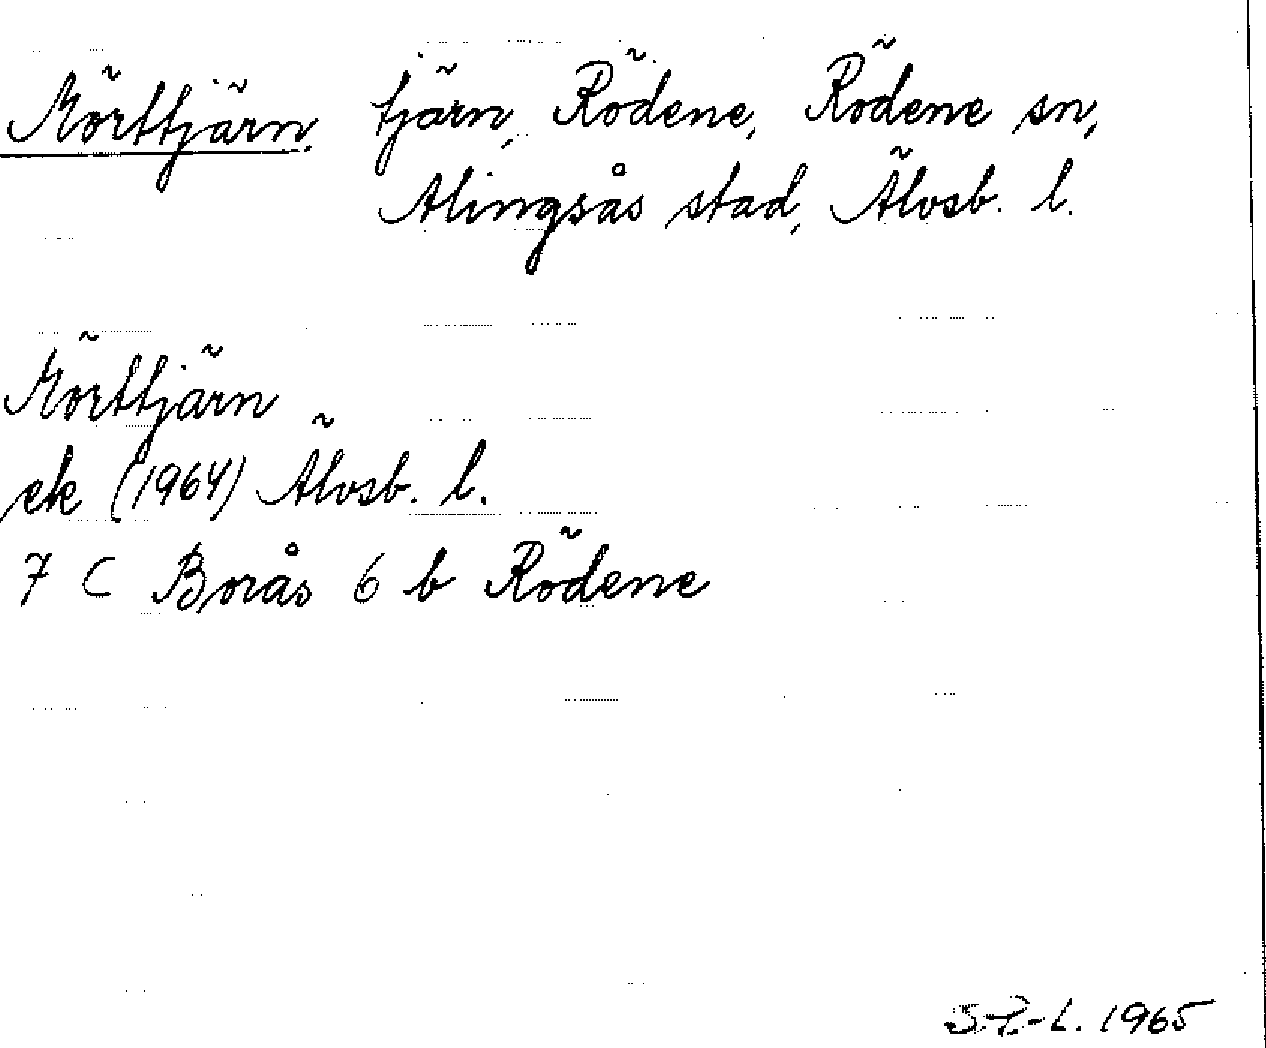 Mörttjärn, tjärn, Rödene, Rödene sn,
Alingsås stad, Älvsb. l.
Mörttjärn
ek (1964) Älvsb. l.
7 C Borås 6 b Rödene
1965